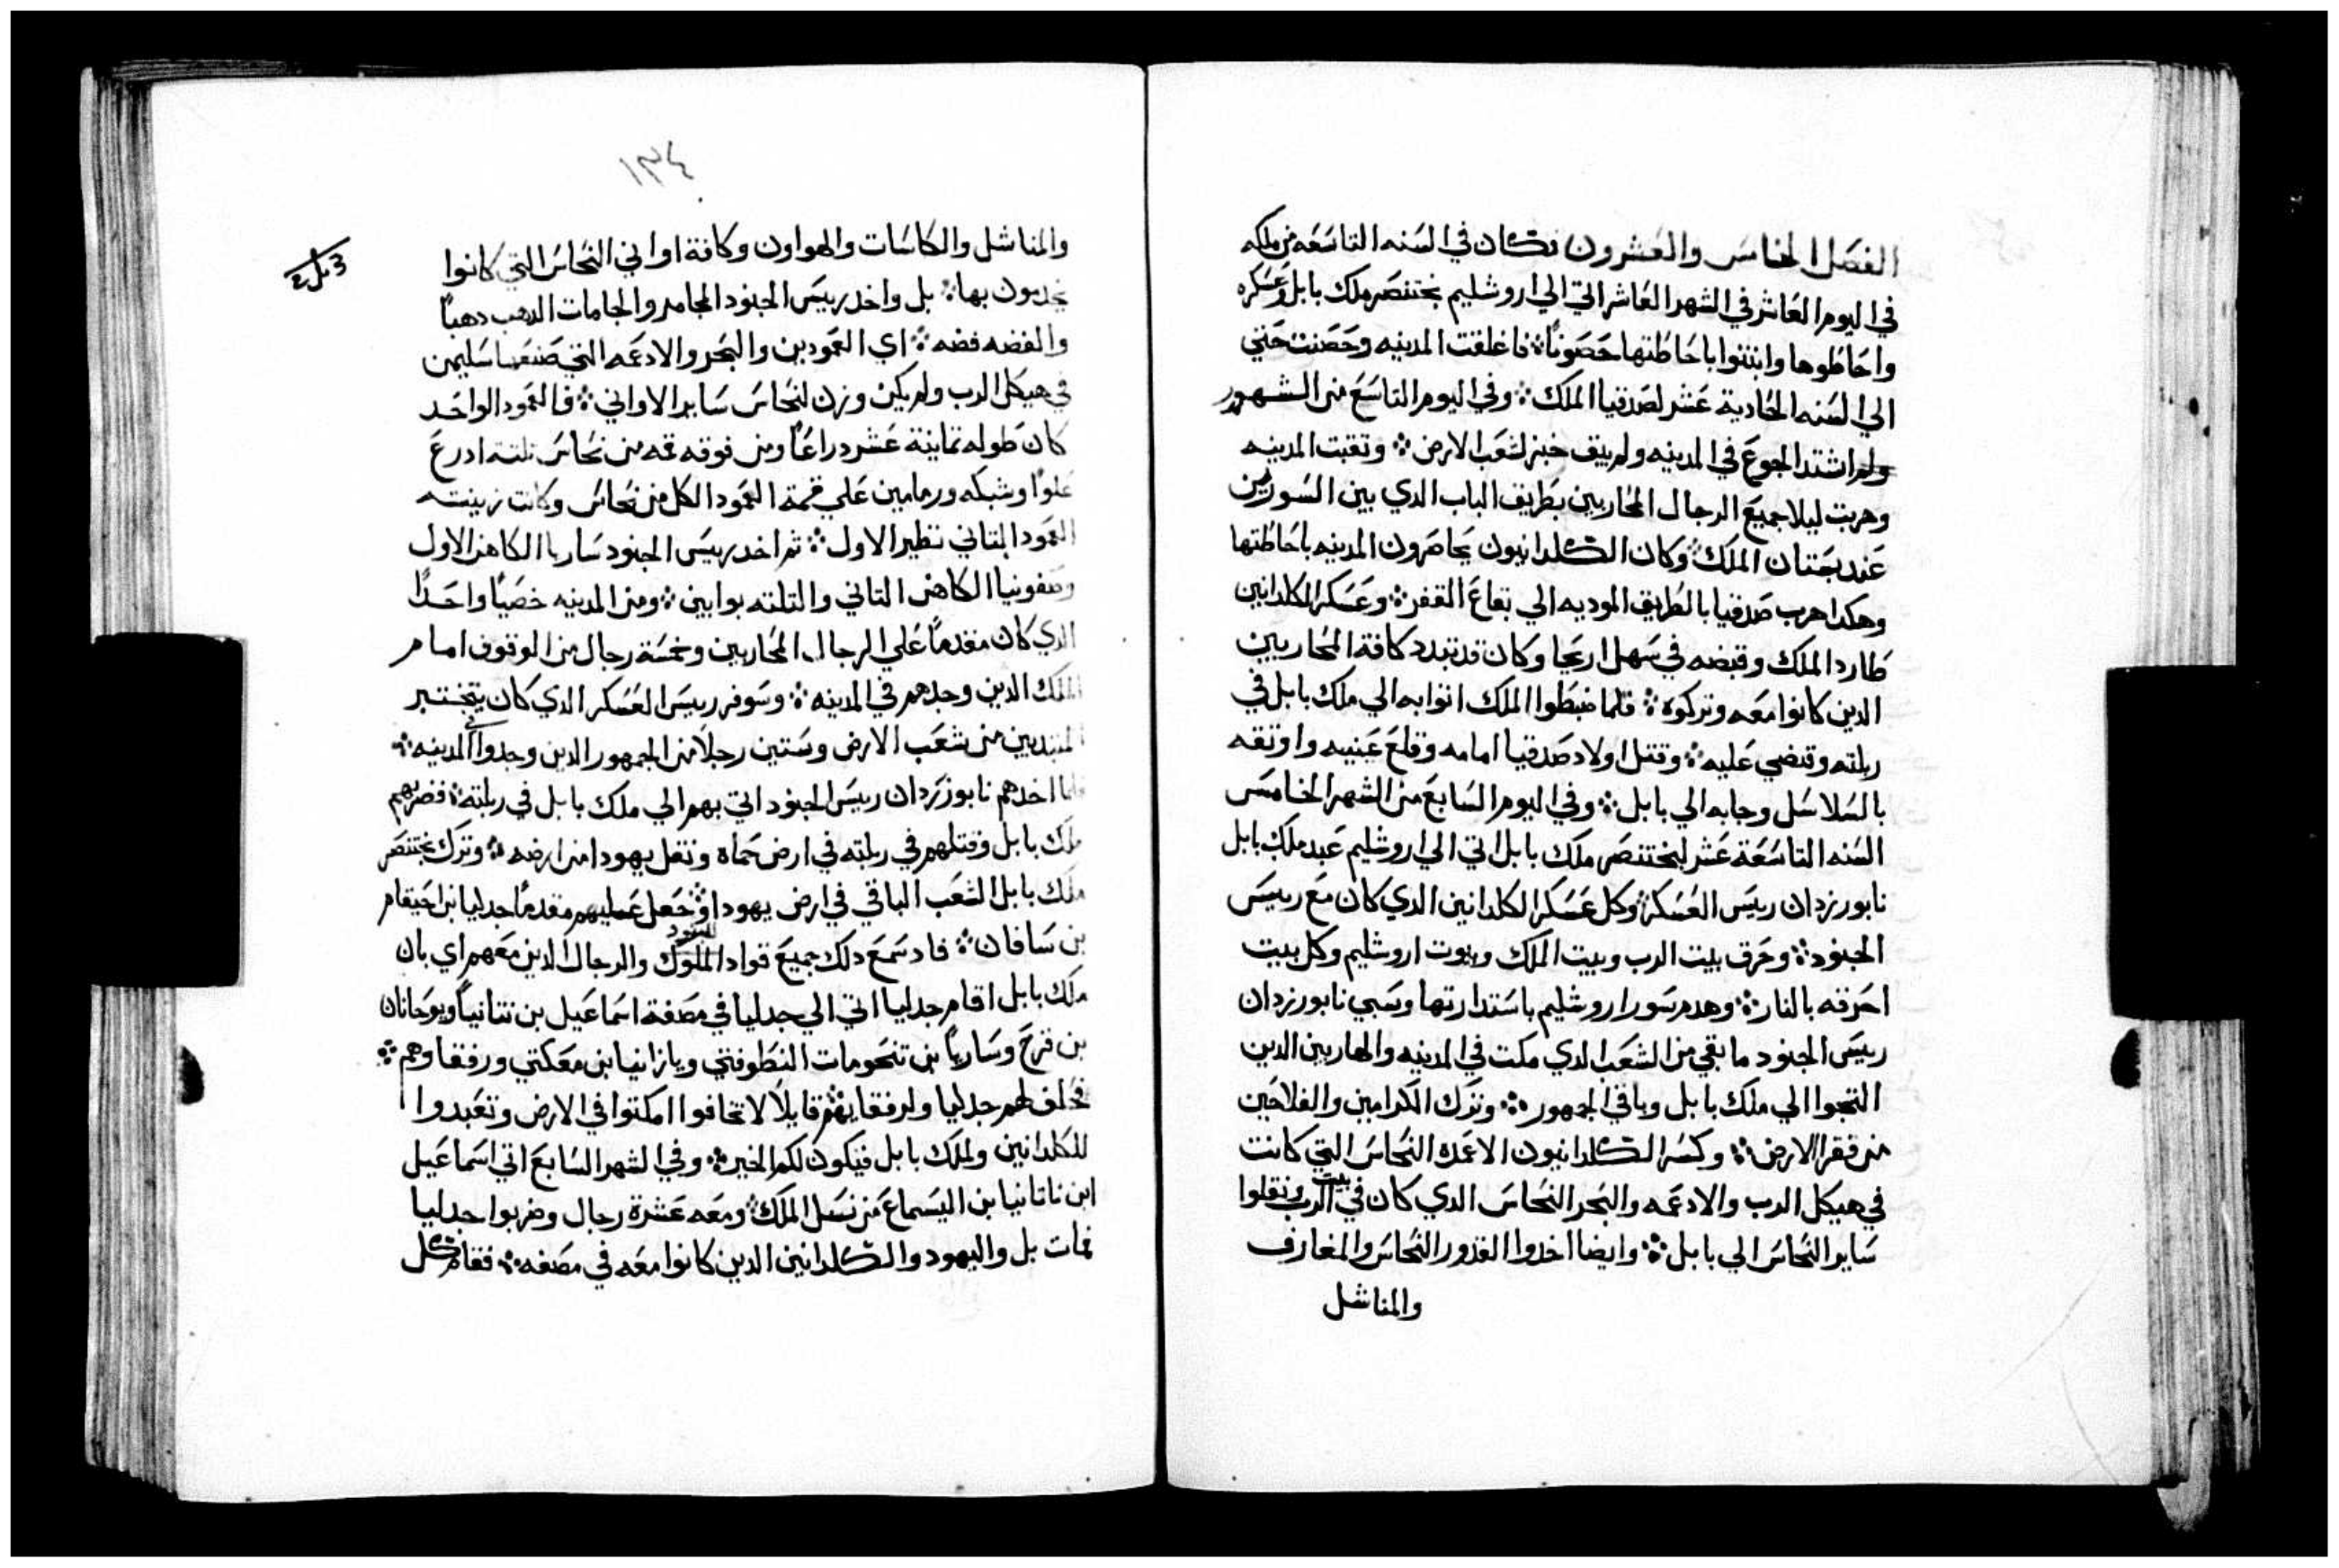 الفصل الخامس والعشرون فكان في السنه التاسعه من ملكه
في اليوم العاشر في الشهر العاشر اتي الي اروشليم بختنصر ملك بابل وعسكره
واحاطوها وابتنوا باحاطتها حصونًا ؞ فاغلقت المدينه وحصنت حتي
الي السنه الحادية عشر لصدقيا الملك ؞ وفي اليوم التاسع من الشهور
ولم اشتد الجوع في المدينه ولم يبق خبز لشعب الارض ؞ وتقبت المدينه
وهربت ليلا جميع الرجال المحاربين بطريق الباب الدي بين السورين
عند جنتان الملك ؞ وكان الكلدانيون يحاصرون المدينه باحاطتها
وهكدا هرب صدقيا بالطريق الموديه الي بقاع القفر ؞ وعسكر الكلدانين
طارد الملك وقبضه في سهل اريحا وكان قد تبدد كافة المحاربين
الدين كانوا معه وتركوه ؞ فلما ضبطوا الملك اتوا به الي ملك بابل في
ربلته وقضي عليه ؞ وقتل اولاد صدقيا امامه وقلع عينيه واوتقه
بالسلاسل وجابه الي بابل ؞ وفي اليوم السابع من الشهر الخامس
السنه التاسعة عشر لبختنصر ملك بابل اتي الي اروشليم عبد ملك بابل
نابورزدان رييس العسكر ؞ وكل عسكر الكلدانين الدي كان مع رييس
الجنود ؞ وحرق بيت الرب وبيت الملك وبيوت اروشليم وكل بيت
احرقه بالنار ؞ وهدم سور اروشليم باستدارتها وسبي نابورزدان
رييس الجنود ما بقي من الشعب الدي مكت في المدينه والهاربين الدين
التجوا الي ملك بابل وباقي الجمهور ؞ وترك الكرامين والفلاحين
من فقرا الارض ؞ وكسر الكلدانيون الاعمدة النحاس التي كانت
في هيكل الرب والادعمه والبحر النحاس الدي كان في بيت الرب ونقلوا
ساير النحاس الي بابل ؞ وايضا اخدوا القدور النحاس والمغارف
والمناشل
١٣٤
والمناشل والكاسات والهواون وكافة اواني النحاس التي كانوا
يخدمون بها ؞ بل واخد رييس الجنود المجامر والجامات الدهب دهبًا
والفضه فضه ؞ اي العمودين والبحر والادعمه التي صنعها سليمن
في هيكل الرب ولم يكن وزن لنحاس ساير الاواني ؞ فالعمود الواحد
كان طوله تمانية عشر دراعًا ومن فوقه قمه من نحاس تلته ادرع
علوًا وشبكه ورمامين علي قمة العمود الكل من نحاس وكانت زينته
العمود التاني نظير الاول ؞ تم اخد رييس الجنود ساريا الكاهن الاول
وصفونيا الكاهن التاني والتلته بوابين ؞ ومن المدينه خصيًا واحدًا
الدي كان مقدمًا علي الرجال المحاربين وخمسة رجال من الوقوف امام
الملك الدين وجدهم في المدينه ؞ وسوفر رييس العسكر الدي كان يختبر
المبتديين من شعب الارض وستين رجلًا من الجمهور الدين وجدوا في المدينه ؞
فلما اخدهم نابوزردان رييس الجنود اتي بهم الي ملك بابل في ربلته ؞ فضربهم
ملك بابل وقتلهم في ربلته في ارض حماه ونقل يهودا من ارضه ؞ وترك بختنصر
ملك بابل الشعب الباقي في ارض يهودا ؞ وجعل عليهم مقدمًا جدليا ابن احيقام
بن سافان ؞ فاد سمع دلك جميع قواد الملوك الجنود والرجال الدين معهم اي بان
ملك بابل اقام جدليا اتي الي جدليا في مصفة اسماعيل بن نتانيا ويوحانان
بن قرح وساريا بن تنحومات النطوفتي ويازانيا بن معكتي ورفقاوهم ؞
فحلف لهم جدليا ولرفقايهم قايلًا لا تخافوا امكتوا في الارض وتعبدوا
للكلدانين ولملك بابل فيكون لكم الخير ؞ وفي الشهر السابع اتي اسماعيل
ابن ناتانيا بن اليسماع من نسل الملك ؞ ومعه عشرة رجال وضربوا جدليا
فمات بل واليهود والكلدانين الدين كانوا معه في مصفه ؞ فقام كل